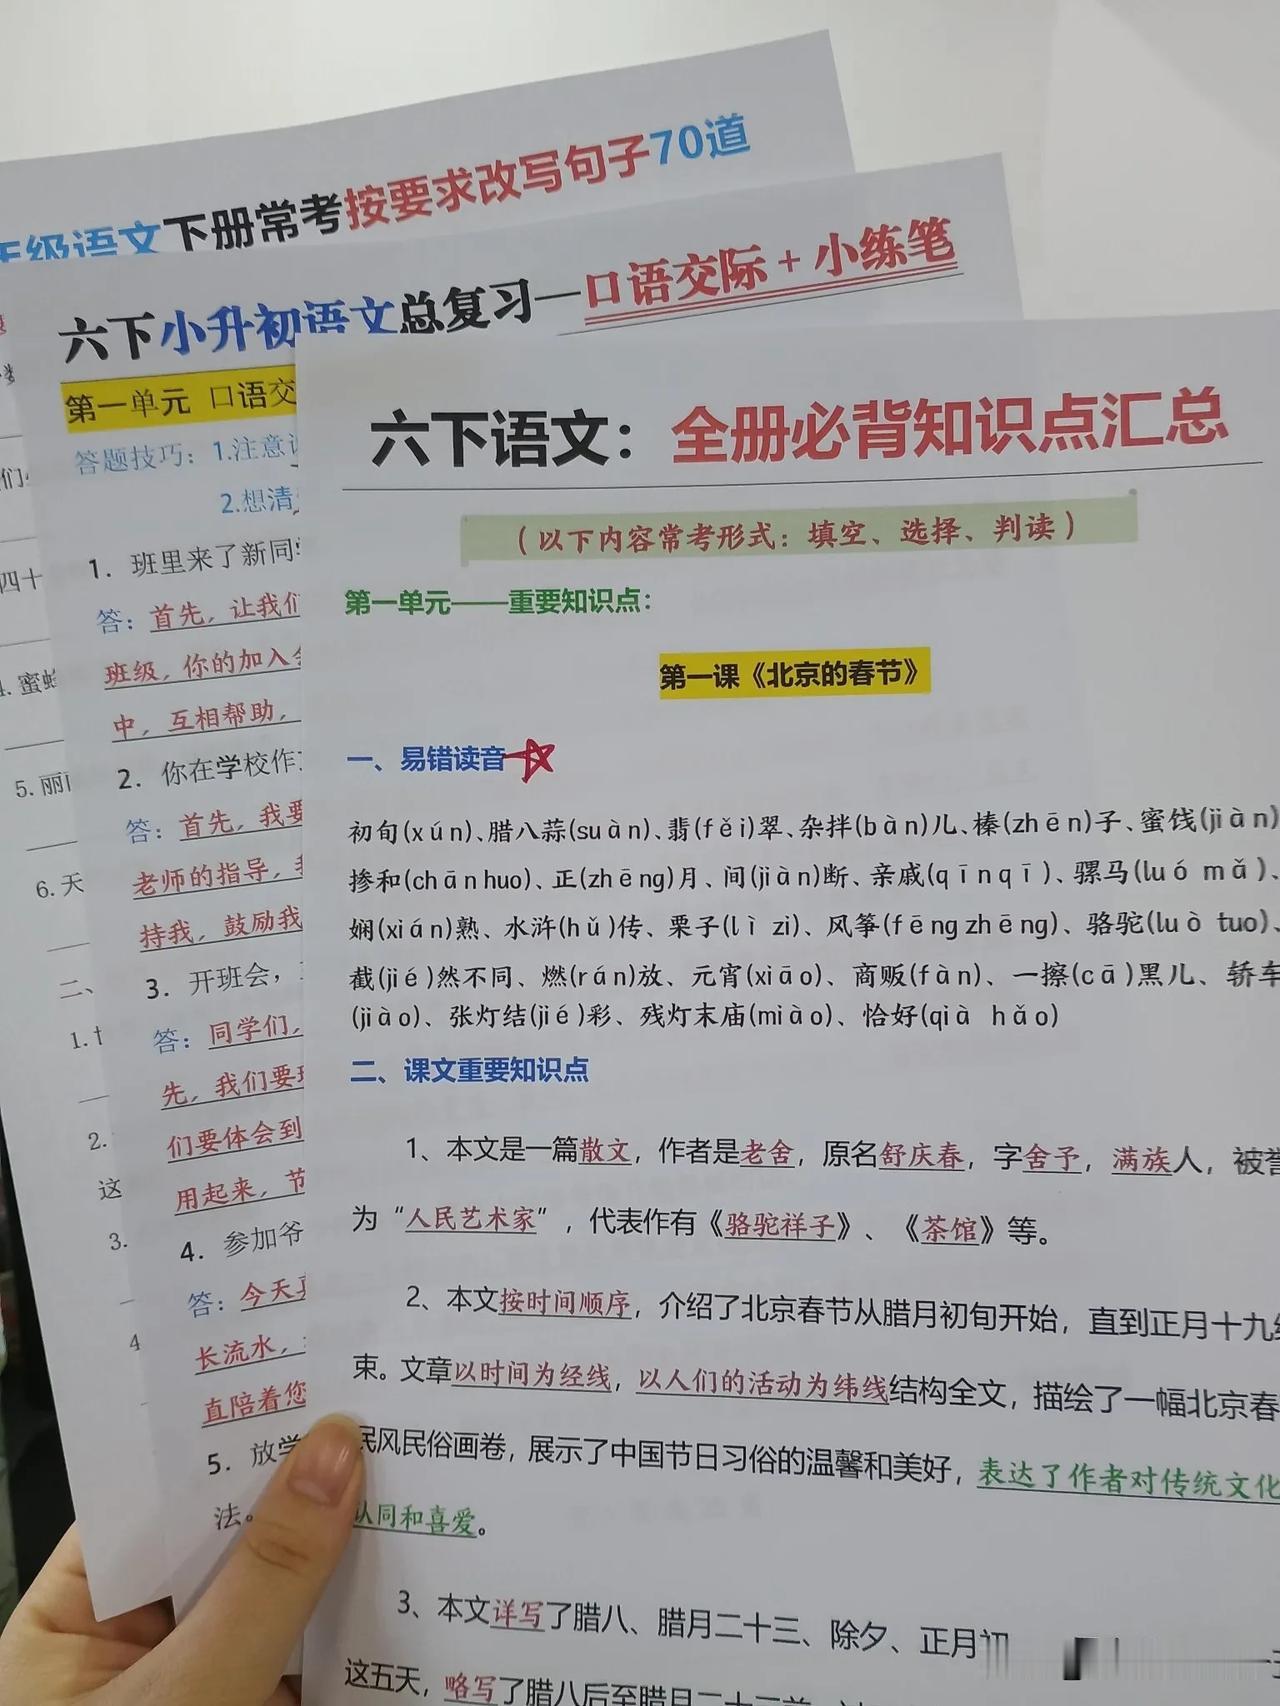 语文下册常考按要求改写句子70道
六下小升初语文总复习—口语交际+小练笔
第一单元 口语交
答题技巧：1.注意
2.想清
1. 班里来了新同
答：首先，让我们
班级，你的加入
中，互相帮助，
2. 你在学校作
答：首先，我要
老师的指导，
持我，鼓励我
3. 开班会，
答：同学们，
先，我们要
们要体会到
用起来，节
4. 参加爷
答：今天
长流水，
直陪着您
5. 放学
法。
们
四十
蜜
5. 丽
6. 天
二、
1.
2.
这
3.
4
六下语文：全册必背知识点汇总
（以下内容常考形式：填空、选择、判读）
第一单元——重要知识点：
第一课《北京的春节》
一、易错读音
初旬(xún)、腊八蒜(suàn)、翡(fěi)翠、杂拌(bàn)儿、榛(zhēn)子、蜜饯(jiàn)
掺和(chān huo)、正(zhēng)月、间(jiàn)断、亲戚(qīnqī)、骡马(luó mǎ)、
娴(xián)熟、水浒(hǔ)传、栗子(lì zi)、风筝(fēng zhēng)、骆驼(luò tuo)、
截(jié)然不同、燃(rán)放、元宵(xiāo)、商贩(fàn)、一擦(cā)黑儿、轿车
(jiào)、张灯结(jié)彩、残灯末庙(miào)、恰好(qià hǎo)
二、课文重要知识点
1、本文是一篇散文，作者是老舍，原名舒庆春，字舍予，满族人，被誉
为“人民艺术家”，代表作有《骆驼祥子》、《茶馆》等。
2、本文按时间顺序，介绍了北京春节从腊月初旬开始，直到正月十九结
束。文章以时间为经线，以人们的活动为纬线结构全文，描绘了一幅北京春
民风民俗画卷，展示了中国节日习俗的温馨和美好，表达了作者对传统文化
认同和喜爱。
3、本文详写了腊八、腊月二十三、除夕、正月初
这五天，略写了腊八后至腊月二十三前